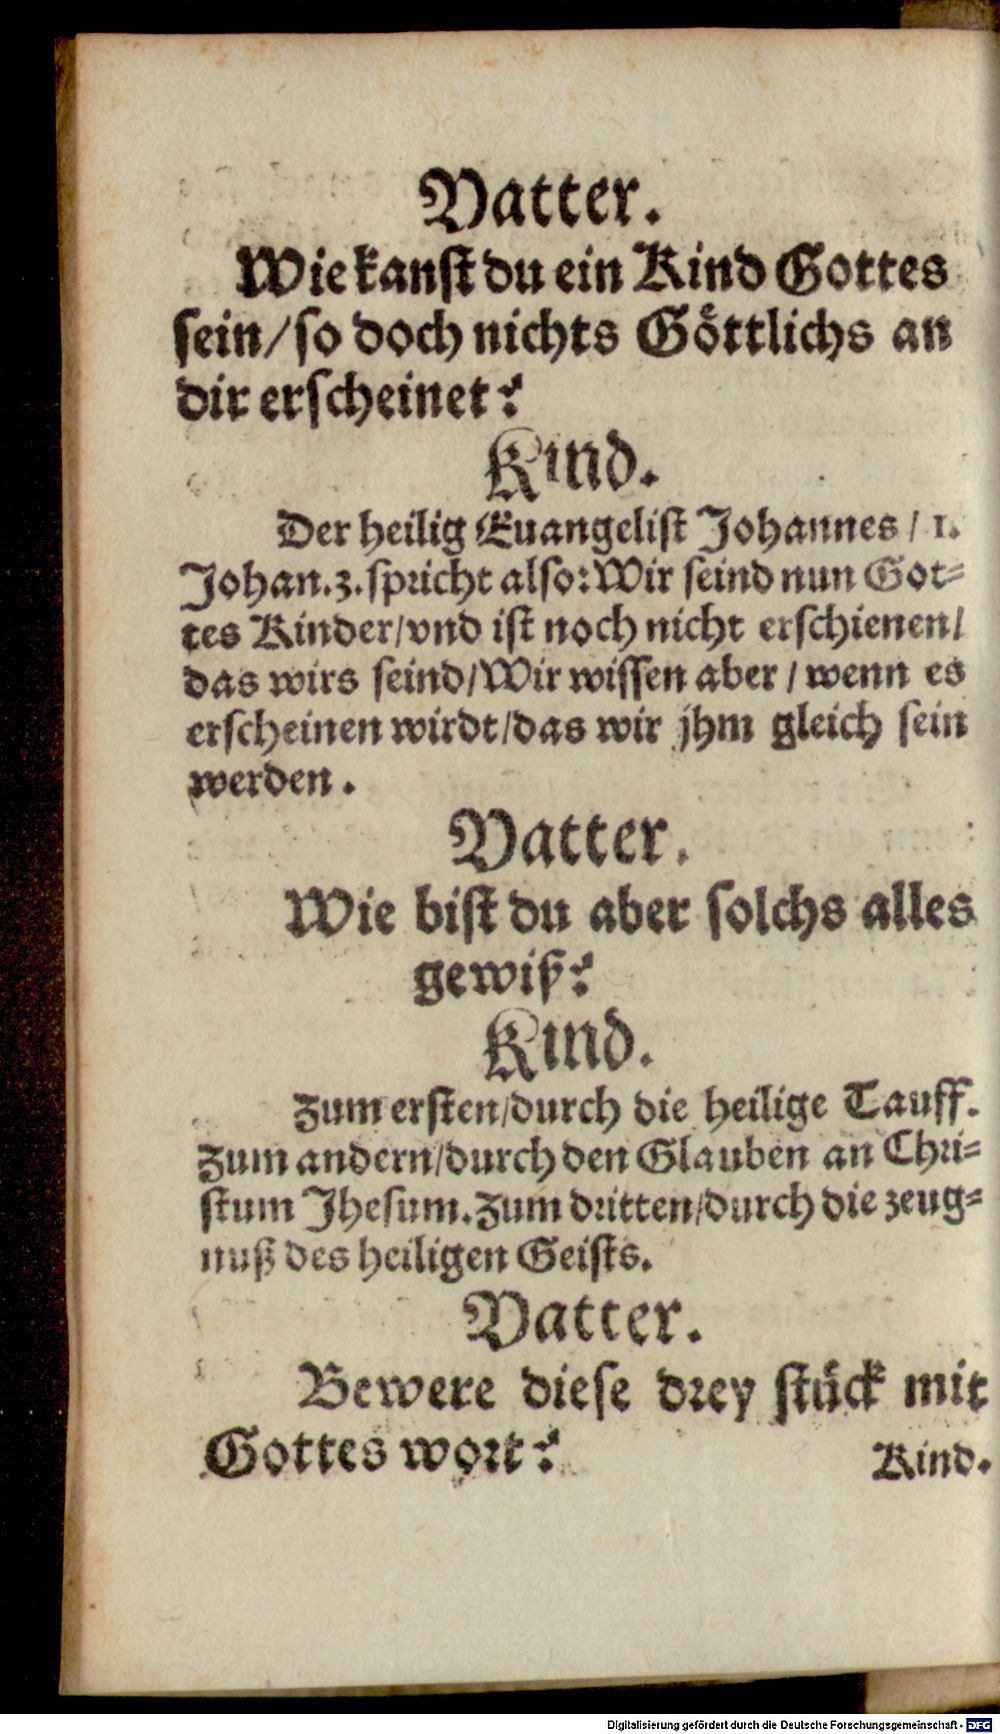 Vatter.
Wie kanst du ein Kind Gottes
sein/so doch nichts Göttlichs an
dir erscheinet?
Kind.
Der heilig Euangelist Johannes / 1.
Johan.3. spricht also: Wir seind nun Got-
tes Kinder/vnd ist noch nicht erschienen/
das wirs seind/Wir wissen aber / wenn es
erscheinen wirdt/das wir jhm gleich sein
werden.
Vatter.
Wie bist du aber solchs alles
gewiß?
Kind.
Zum ersten/durch die heilige Tauff.
Zum andern/durch den Glauben an Chri-
stum Jhesum. Zum dritten/durch die zeug-
nuß des heiligen Geists.
Vatter.
Bewere diese drey stück mit
Gottes wort?
Kind.
Digitalisierung gefördert durch die Deutsche Forschungsgemeinschaft - DFG